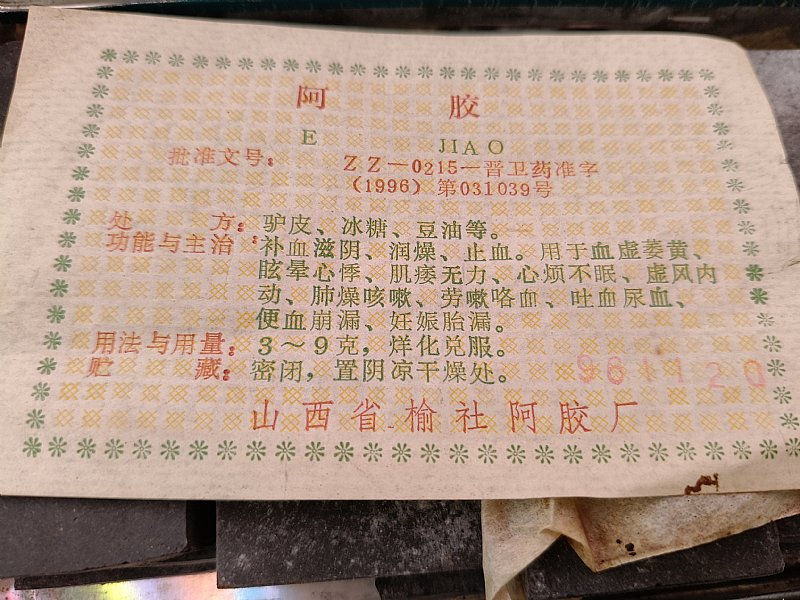 阿 胶
E JIAO
批准文号：ZZ—0215—晋卫药准字
（1996）第031039号
处 方：驴皮、冰糖、豆油等。
功能与主治：补血滋阴、润燥、止血。用于血虚萎黄、
眩晕心悸、肌痿无力、心烦不眠、虚风内
动、肺燥咳嗽、劳嗽咯血、吐血尿血、
便血崩漏、妊娠胎漏。
用法与用量：3～9克，烊化兑服。
贮 藏：密闭，置阴凉干燥处。
961120
山西省榆社阿胶厂